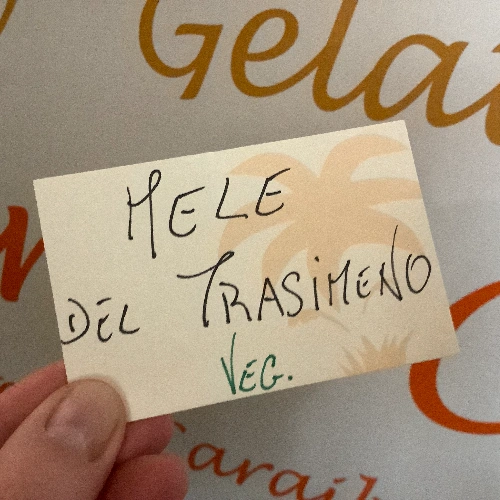 Gelat
MELE
DEL TRASIMENO
VEG.
Caraib